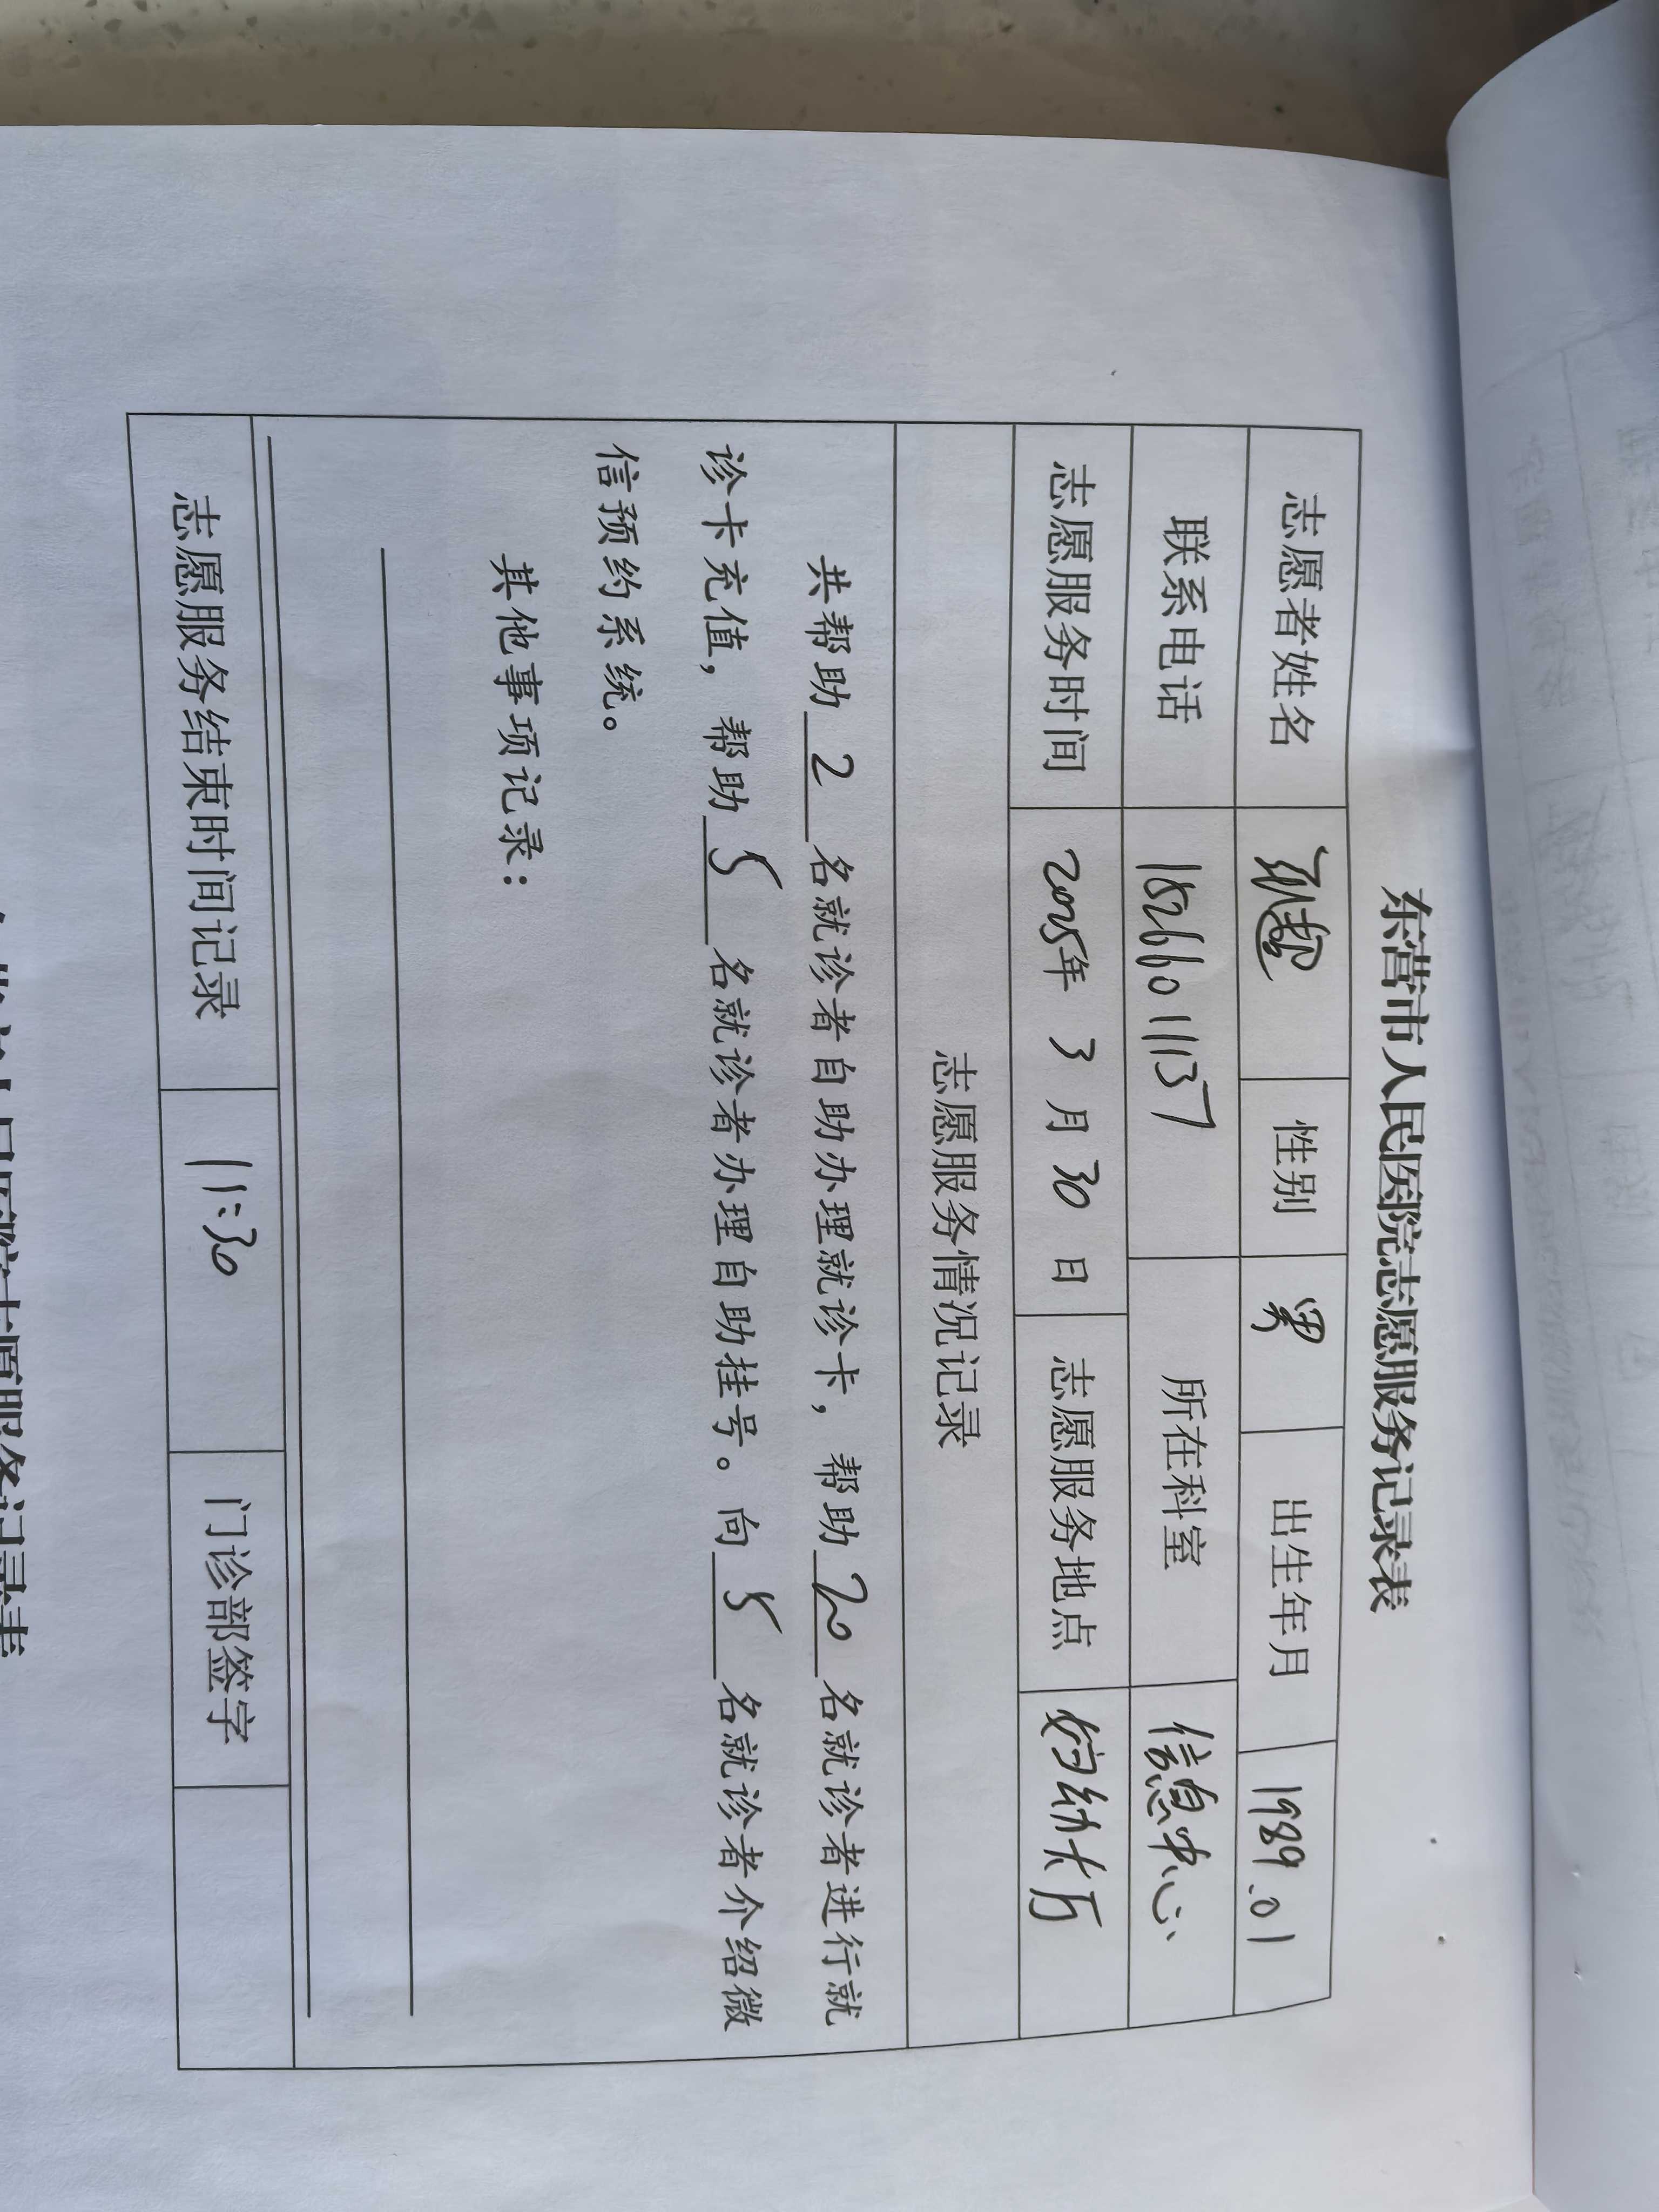 东营市人民医院志愿服务记录表
志愿者姓名 孙超 性别 男 出生年月 1989.01
联系电话 18266011137 所在科室 信息中心
志愿服务时间 2025年 3 月 30 日 志愿服务地点 妇幼大厅
志愿服务情况记录
共帮助 2 名就诊者自助办理就诊卡，帮助 20 名就诊者进行就
诊卡充值，帮助 5 名就诊者办理自助挂号。向 5 名就诊者介绍微
信预约系统。
其他事项记录：
志愿服务结束时间记录 11:30 门诊部签字